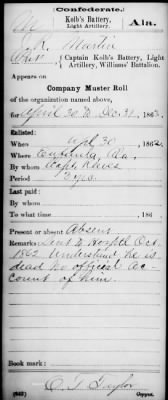 Confederate.
M
Kolb's Battery,
Light Artillery.
Ala.
R. Martin
Captain Kolb's Battery, Light
Artillery, Williams' Battalion.
Appears on
Company Muster Roll
of the organization named above,
for April 30 to Dec. 31, 1862.
Enlisted:
When Apl 30, 1862.
Where Eufaula, Ala.
By whom Capt. Reves
Period 3 yrs.
Last paid:
By whom
To what time , 186 .
Present or absent Absent
Remarks: Sent to Hosptl Oct.
1862 Understand he is
dead No official ac-
count of him.
Book mark:
(642)
Copyist.